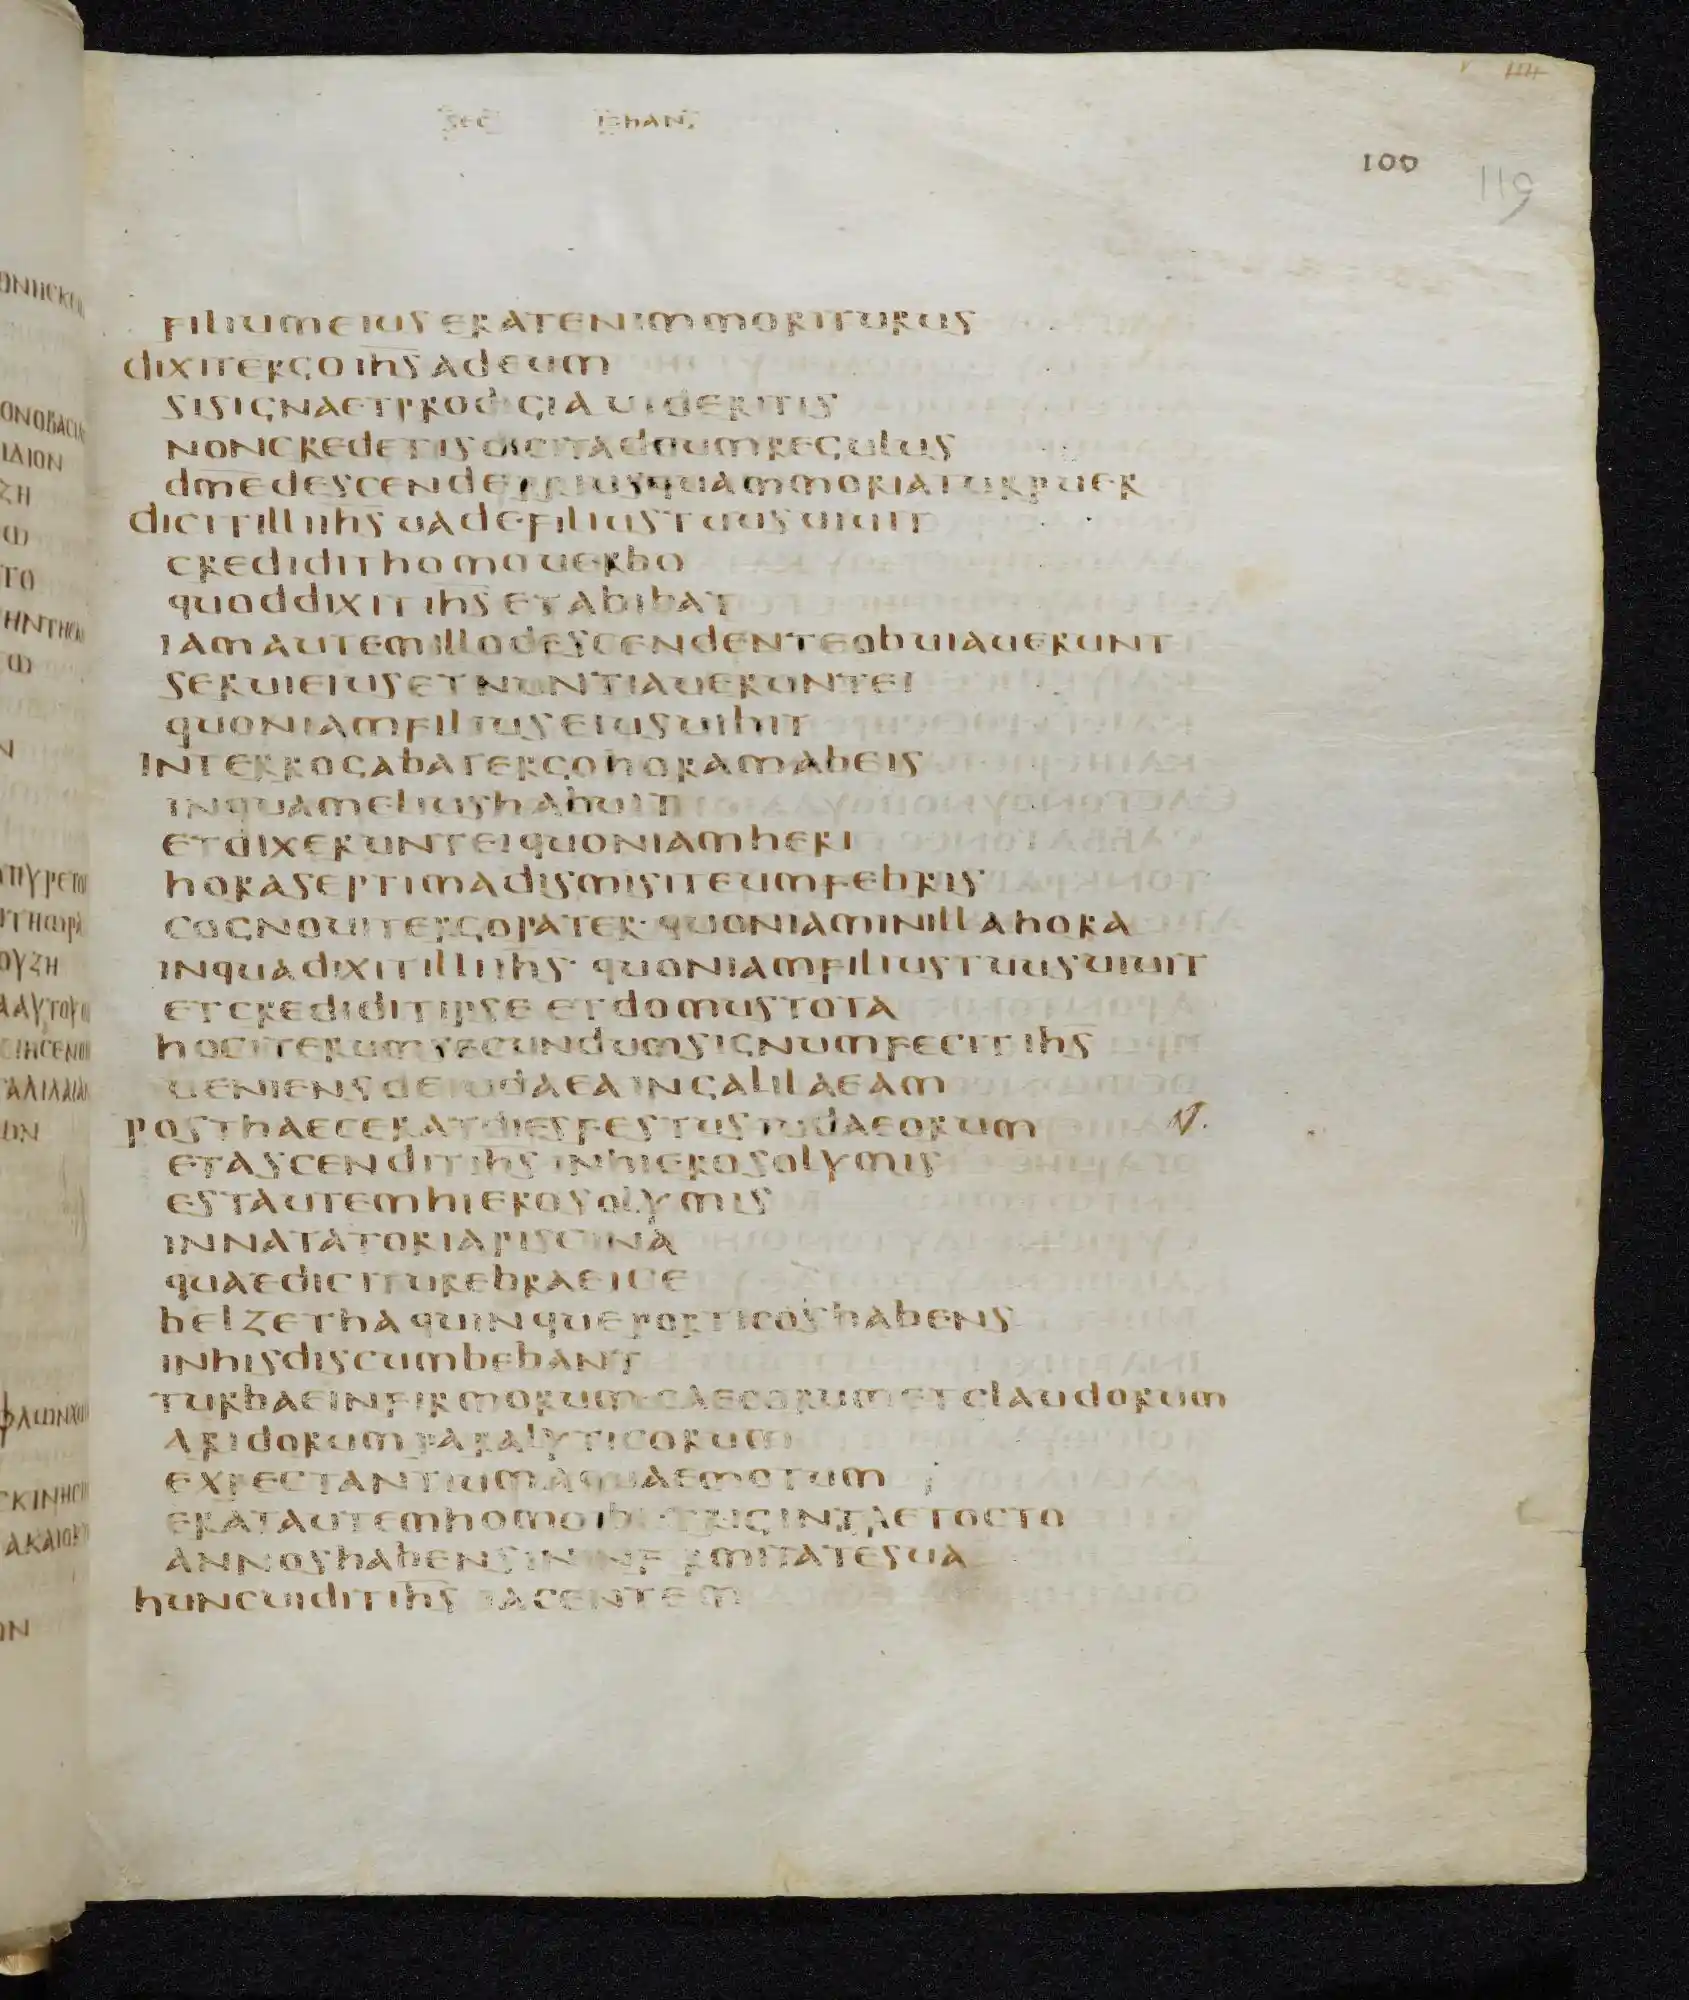 sec iohan
100
119
filium eius erat enim moriturus
dixit ergo ihs ad eum
si signa et prodigia uideritis
non credetis dicit ad eum regulus
dme descende prius quam moriatur puer
dicit illi ihs uade filius tuus uiuit
credidit homo uerbo
quod dixit ihs et abibat
iam autem illo descendente obuiauerunt
serui eius et nuntiauerunt ei
quoniam filius eius uibit
interrogabat ergo horam ab eis
in qua melius habuit
et dixerunt ei quoniam heri
hora septima dismisit eum febris
cognouit ergo pater · quoniam in illa hora
in qua dixit illi ihs · quoniam filius tuus uiuit
et credidit ipse et domus tota
hoc iterum secundum signum fecit ihs
ueniens de iudaea in galilaeam
post haec erat dies festus iudaeorum
et ascendit ihs in hierosolymis
est autem hierosolymis
in natatoria piscina
quae dicitur ebraeice
belzetha quinque porticos habens
in his discumbebant
turbae infirmorum · caecorum et claudorum
aridorum paralyticorum
expectantium aquae motum
erat autem homo ibi · triginta et octo
annos habens in infirmitate sua
hunc uidit ihs iacentem